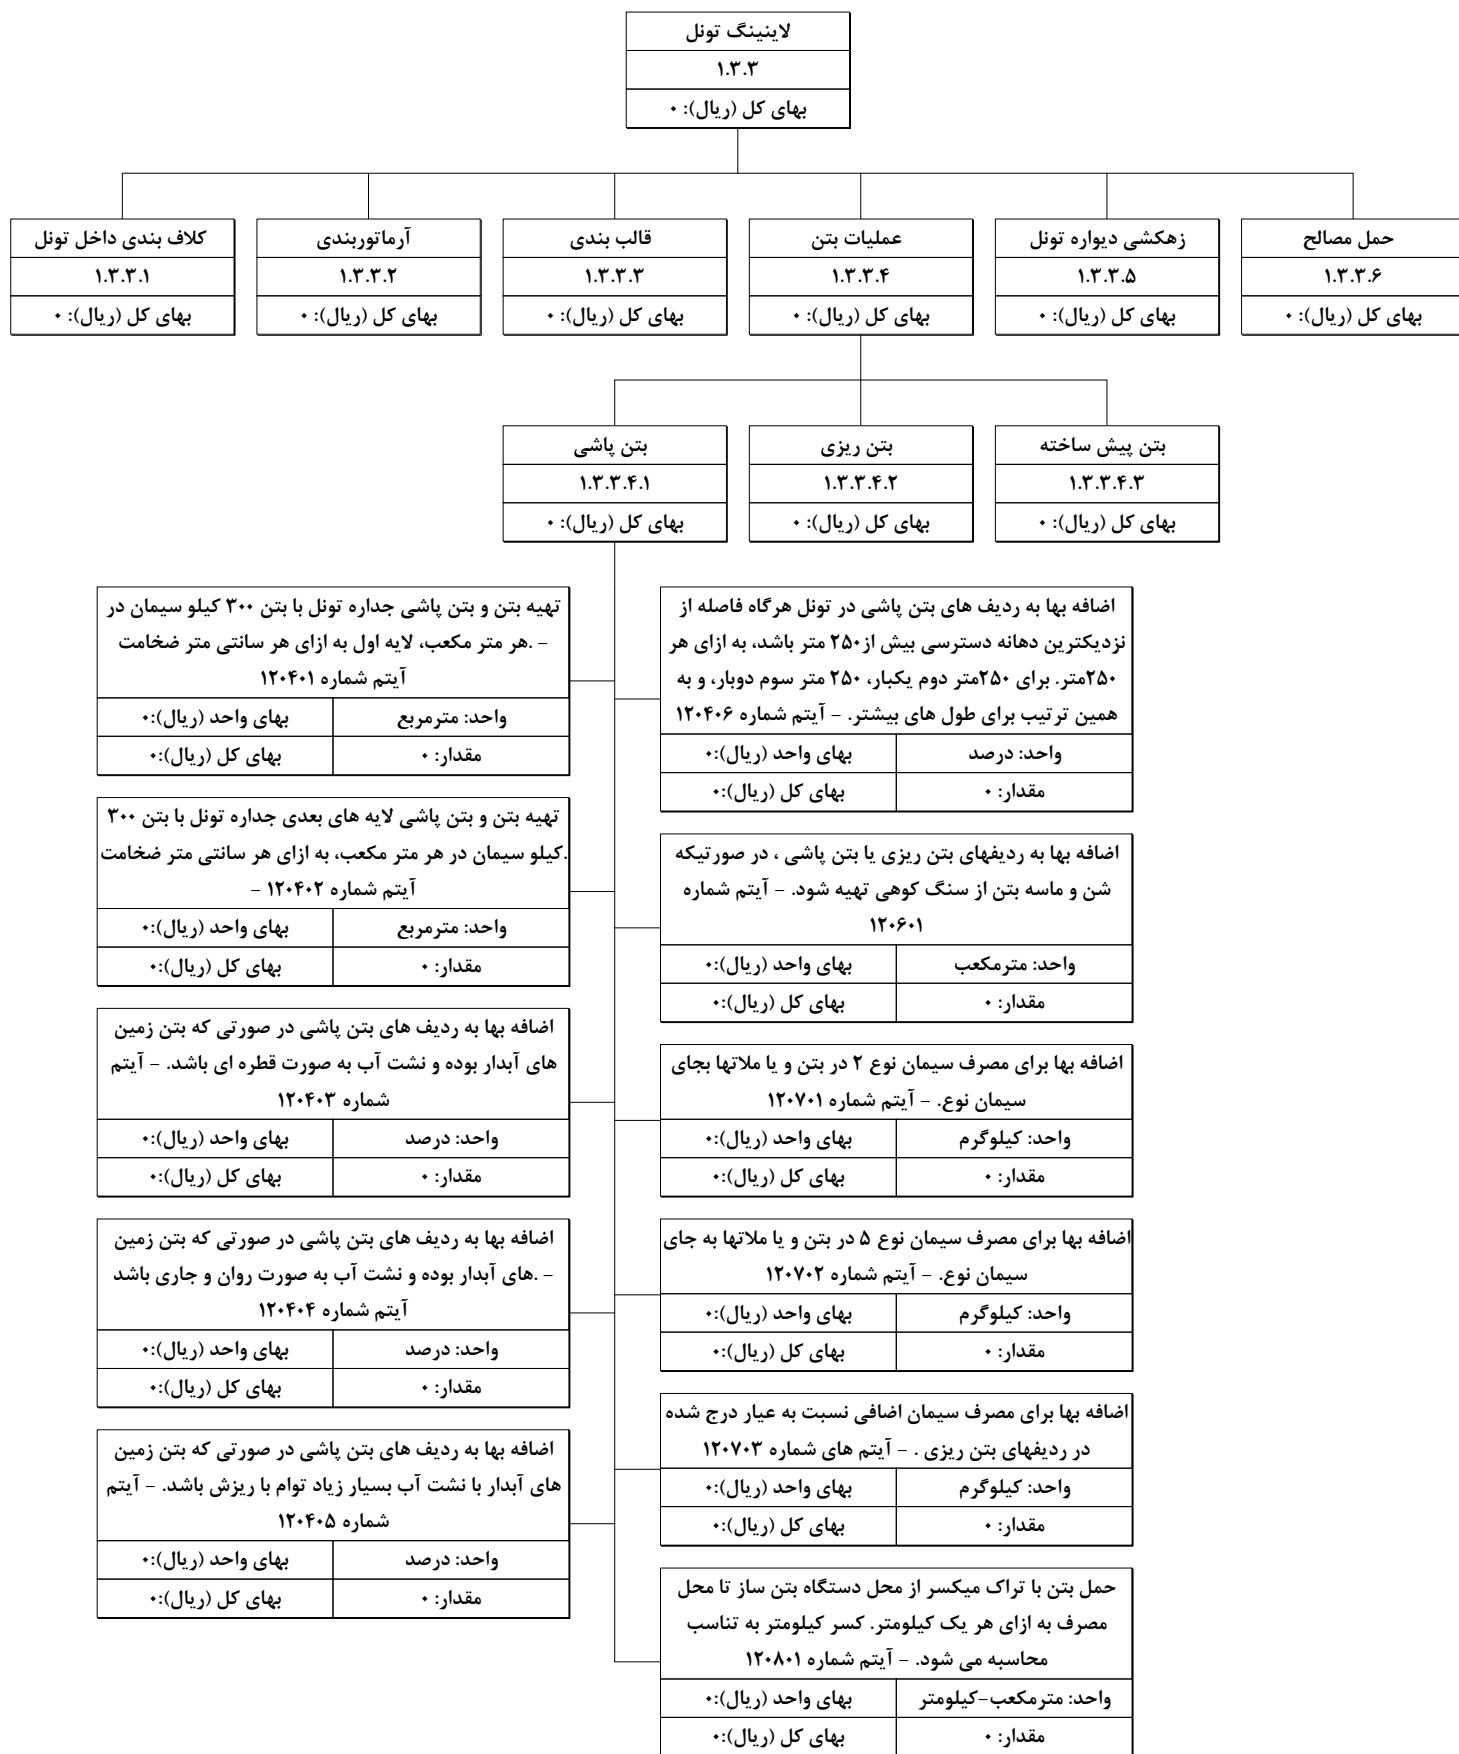 لاینینگ تونل
۱.۳.۳
بهای کل (ریال): ۰
کلاف بندی داخل تونل
۱.۳.۳.۱
بهای کل (ریال): ۰
آرماتوربندی
۱.۳.۳.۲
بهای کل (ریال): ۰
قالب بندی
۱.۳.۳.۳
بهای کل (ریال): ۰
عملیات بتن
۱.۳.۳.۴
بهای کل (ریال): ۰
زهکشی دیواره تونل
۱.۳.۳.۵
بهای کل (ریال): ۰
حمل مصالح
۱.۳.۳.۶
بهای کل (ریال): ۰
بتن پاشی
۱.۳.۳.۴.۱
بهای کل (ریال): ۰
بتن ریزی
۱.۳.۳.۴.۲
بهای کل (ریال): ۰
بتن پیش ساخته
۱.۳.۳.۴.۳
بهای کل (ریال): ۰
تهیه بتن و بتن پاشی جداره تونل با بتن ۳۰۰ کیلو سیمان در
هر متر مکعب، لایه اول به ازای هر سانتی متر ضخامت. –
آیتم شماره ۱۲۰۴۰۱
واحد: مترمربع
بهای واحد (ریال):۰
مقدار: ۰
بهای کل (ریال):۰
تهیه بتن و بتن پاشی لایه های بعدی جداره تونل با بتن ۳۰۰
کیلو سیمان در هر متر مکعب، به ازای هر سانتی متر ضخامت.
– آیتم شماره ۱۲۰۴۰۲
واحد: مترمربع
بهای واحد (ریال):۰
مقدار: ۰
بهای کل (ریال):۰
اضافه بها به ردیف های بتن پاشی در صورتی که بتن زمین
های آبدار بوده و نشت آب به صورت قطره ای باشد. – آیتم
شماره ۱۲۰۴۰۳
واحد: درصد
بهای واحد (ریال):۰
مقدار: ۰
بهای کل (ریال):۰
اضافه بها به ردیف های بتن پاشی در صورتی که بتن زمین
های آبدار بوده و نشت آب به صورت روان و جاری باشد. –
آیتم شماره ۱۲۰۴۰۴
واحد: درصد
بهای واحد (ریال):۰
مقدار: ۰
بهای کل (ریال):۰
اضافه بها به ردیف های بتن پاشی در صورتی که بتن زمین
های آبدار با نشت آب بسیار زیاد توام با ریزش باشد. – آیتم
شماره ۱۲۰۴۰۵
واحد: درصد
بهای واحد (ریال):۰
مقدار: ۰
بهای کل (ریال):۰
اضافه بها به ردیف های بتن پاشی در تونل هرگاه فاصله از
نزدیکترین دهانه دسترسی بیش از۲۵۰ متر باشد، به ازای هر
۲۵۰متر. برای ۲۵۰متر دوم یکبار، ۲۵۰ متر سوم دوبار، و به
همین ترتیب برای طول های بیشتر. – آیتم شماره ۱۲۰۴۰۶
واحد: درصد
بهای واحد (ریال):۰
مقدار: ۰
بهای کل (ریال):۰
اضافه بها به ردیفهای بتن ریزی یا بتن پاشی ، در صورتیکه
شن و ماسه بتن از سنگ کوهی تهیه شود. – آیتم شماره
۱۲۰۶۰۱
واحد: مترمکعب
بهای واحد (ریال):۰
مقدار: ۰
بهای کل (ریال):۰
اضافه بها برای مصرف سیمان نوع ۲ در بتن و یا ملاتها بجای
سیمان نوع. – آیتم شماره ۱۲۰۷۰۱
واحد: کیلوگرم
بهای واحد (ریال):۰
مقدار: ۰
بهای کل (ریال):۰
اضافه بها برای مصرف سیمان نوع ۵ در بتن و یا ملاتها به جای
سیمان نوع. – آیتم شماره ۱۲۰۷۰۲
واحد: کیلوگرم
بهای واحد (ریال):۰
مقدار: ۰
بهای کل (ریال):۰
اضافه بها برای مصرف سیمان اضافی نسبت به عیار درج شده
در ردیفهای بتن ریزی . – آیتم های شماره ۱۲۰۷۰۳
واحد: کیلوگرم
بهای واحد (ریال):۰
مقدار: ۰
بهای کل (ریال):۰
حمل بتن با تراک میکسر از محل دستگاه بتن ساز تا محل
مصرف به ازای هر یک کیلومتر. کسر کیلومتر به تناسب
محاسبه می شود. – آیتم شماره ۱۲۰۸۰۱
واحد: مترمکعب–کیلومتر
بهای واحد (ریال):۰
مقدار: ۰
بهای کل (ریال):۰